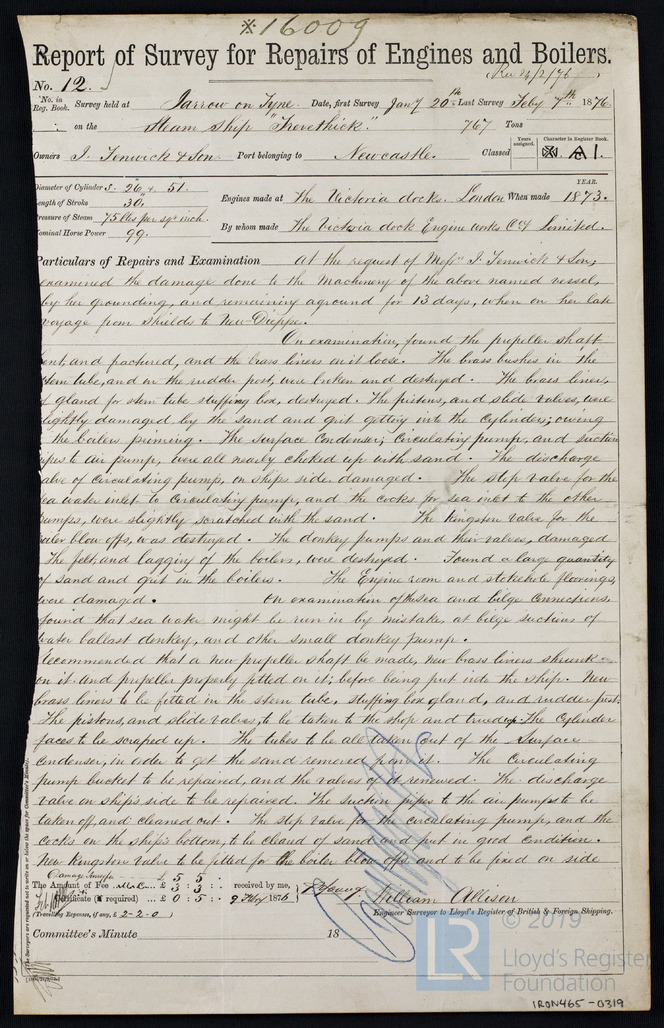 ※16009
Report of Survey for Repairs of Engines and Boilers.
No. 12.
Rec 24/2/76
No. in Reg. Book. Survey held at Jarrow on Tyne. Date, first Survey Jany 20th Last Survey Feby 7th 1876
on the Steam Ship "Trevethick". 767 Tons
Years assigned. Character in Register Book.
Owners I. Fenwick & Son Port belonging to Newcastle. Classed A 1.
Diameter of Cylinders. 26 & 51.
Length of Stroke 30"
Pressure of Steam 75 lbs per sqr inch.
Nominal Horse Power 99.
YEAR.
Engines made at The Victoria docks. London When made 1873.
By whom made The Victoria dock Engine works Coy Limited.
Particulars of Repairs and Examination At the request of Messrs I. Fenwick & Son,
examined the damage done to the Machinery of the above named vessel,
by her grounding, and remaining aground for 13 days, when on her late
voyage from Shields to New-Dieppe.
On examination, found the propeller shaft
bent, and fractured, and the brass liners on it loose. The brass bushes in the
stern tube, and in the rudder post, were broken and destroyed. The brass liner,
of gland for stern tube stuffing box, destroyed. The pistons, and slide valves, were
slightly damaged by the sand and grit getting into the cylinders; owing
the boilers priming. The Surface Condenser, Circulating pump, and suction
pipes to air pump, were all nearly choked up with sand. The discharge
valve of circulating pump, on ships side damaged. The stop valve for the
sea water inlet to Circulating pump, and the cocks for sea inlet to the other
pumps, were slightly scratched with the sand. The Kingston valve for the
boiler blow offs, was destroyed. The donkey pumps and their valves, damaged
The felt, and lagging of the boilers, were destroyed. Found a large quantity
of sand and grit in the boilers. The Engine room and stokehole floorings,
were damaged. On examination of the sea and bilge connections
found that sea water might be run in by mistake, at bilge suctions of
water ballast donkey, and other small donkey pump.
Recommended that a new propeller shaft be made, new brass liners shrunk
on it and propeller properly fitted on it; before being put into the ship. New
brass liners to be fitted in the stern tube, stuffing box gland, and rudder post.
The pistons, and slide valves, to be taken to the shop and trued up. The Cylinder
faces to be scraped up. The tubes to be all taken out of the Surface
condenser, in order to get the sand removed from it. The Circulating
pump bucket to be repaired, and the valves of it renewed. The discharge
valve on ship's side to be repaired. The suction pipes to the air pumps to be
taken off, and cleaned out. The stop valve for the circulating pump, and the
cocks on the ship's bottom, to be cleared of sand and put in good condition.
New Kingston valve to be fitted for the boiler blow offs and to be fixed on side
Damage £ 5 : 5 :
The Amount of Fee ... £ 3 : 3 : received by me,
Certificate (if required) ... £ 0 : 5 : 9 Feby 1876
(Travelling Expenses, if any, £ 2-2-0)
William Allison
Engineer Surveyor to Lloyd's Register of British & Foreign Shipping.
Committee's Minute 18
(The Surveyors are requested not to write on or below the space for Committee's Minute.)
© 2019
LR
Lloyd's Register
Foundation
IRON465-0319